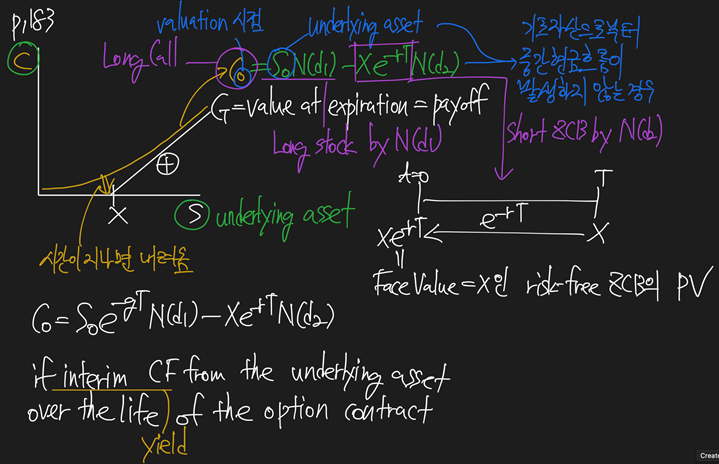 p,183
valuation 시점
underlying asset
기초자산으로부터
중간현금흐름이
발생하지 않는 경우
C
Long Call
C₀ = S₀N(d₁) - Xe^-rT N(d₂)
C_T = value at expiration = payoff
Long stock by N(d₁)
short ZCB by N(d₂)
⊕
X
S underlying asset
시간이 지나면 내려옴
t=0
T
e^-rT
Xe^-rT
X
=
Face Value = X인 risk-free ZCB의 PV
C₀ = S₀e^-qT N(d₁) - Xe^-rT N(d₂)
if interim CF from the underlying asset
over the life of the option contract
yield
Create